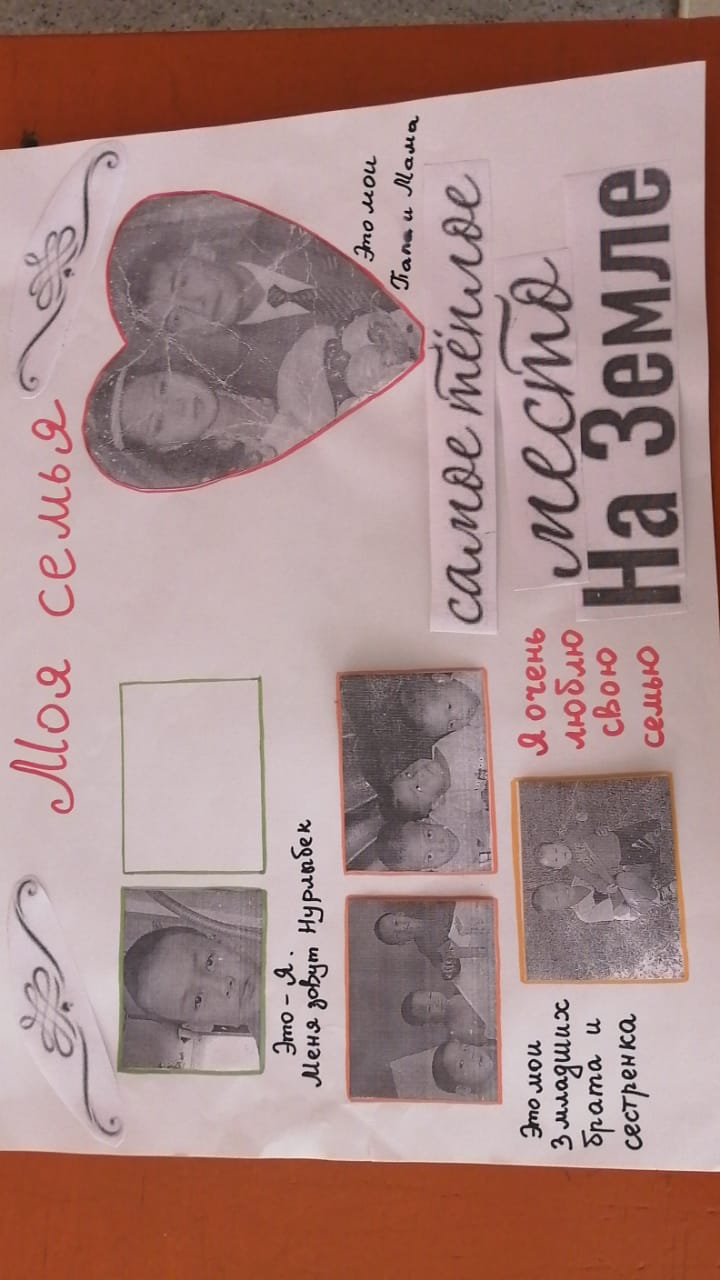 Моя семья
Это - Я.
Меня зовут Нурлыбек
Это мои
Папа и Мама
Это мои
3 младших
брата и
сестренка
Я очень
люблю
свою
семью
самое тёплое
место
На Земле